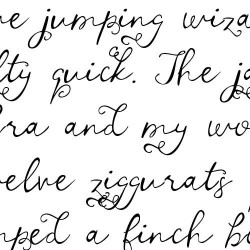 ve jumping wiza
lty quick. The ja
ra and my wo
elve ziggurats
mped a finch bi